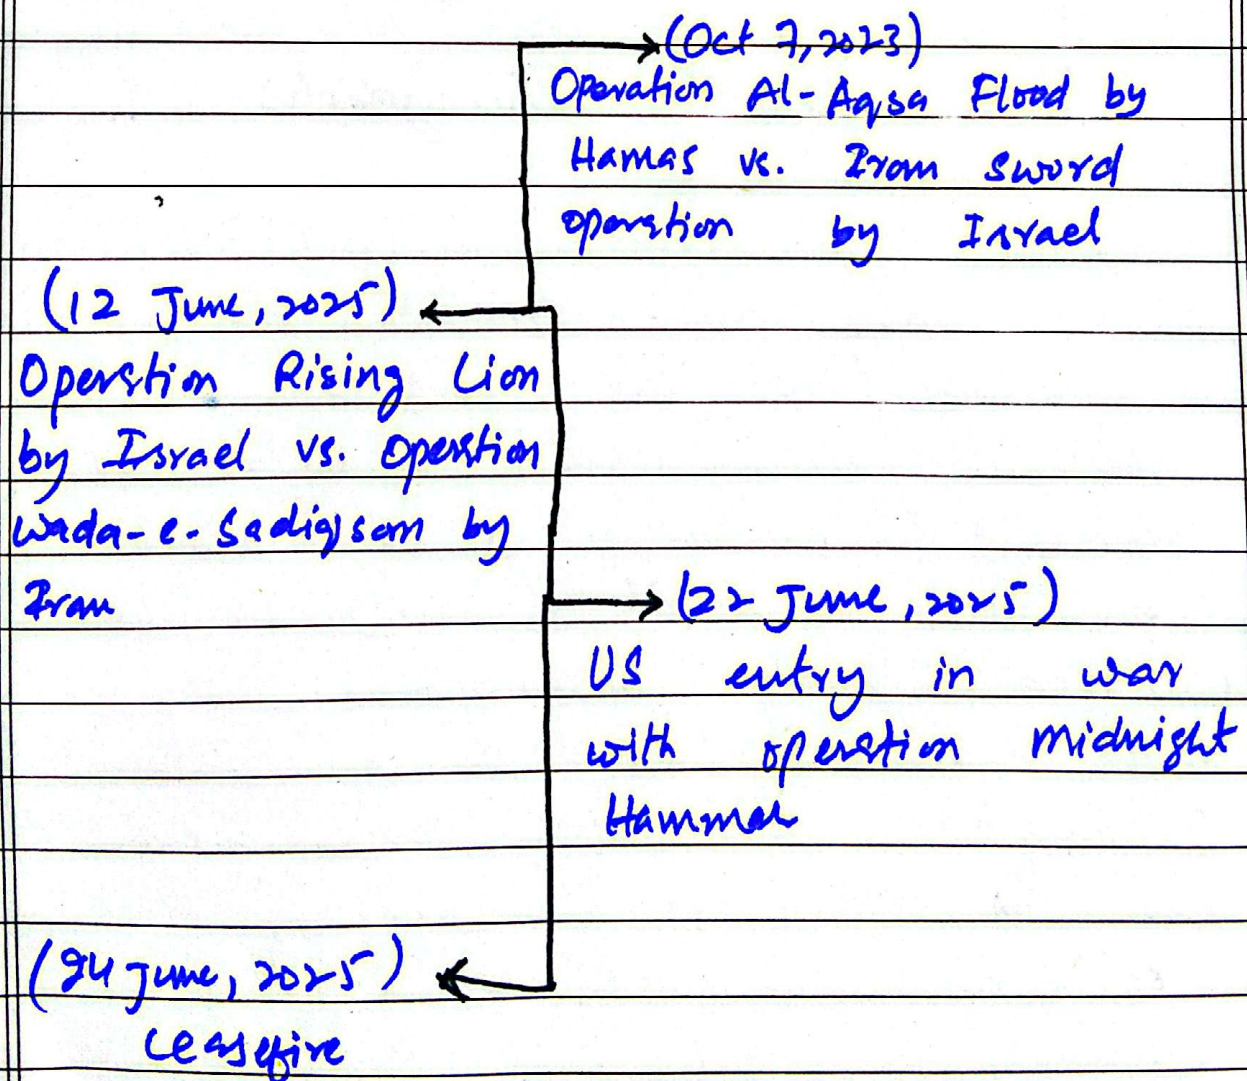 (Oct 7, 2023)
Operation Al-Aqsa Flood by
Hamas vs. Iron Sword
operation by Israel
(12 June, 2025)
Operation Rising Lion
by Israel vs. operation
Wada-e-Sadiqsom by
Iran
(22 June, 2025)
US entry in war
with operation Midnight
Hammer
(24 June, 2025)
Ceasefire